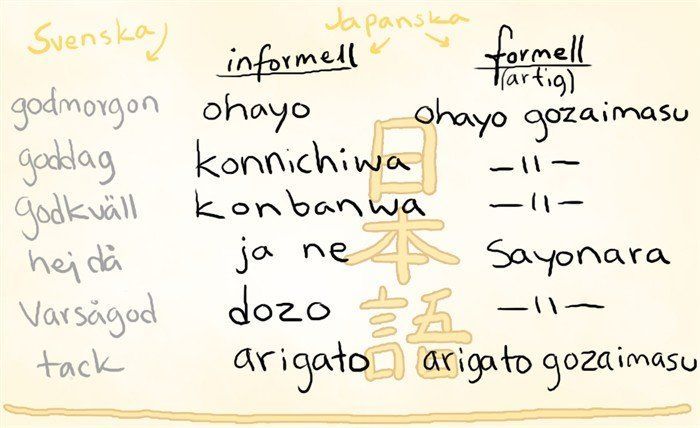 Svenska Japanska
informell formell
(artig)
godmorgon ohayo ohayo gozaimasu
goddag konnichiwa —〃—
godkväll konbanwa —〃—
hej då ja ne Sayonara
Varsågod dozo —〃—
tack arigato arigato gozaimasu
日本語